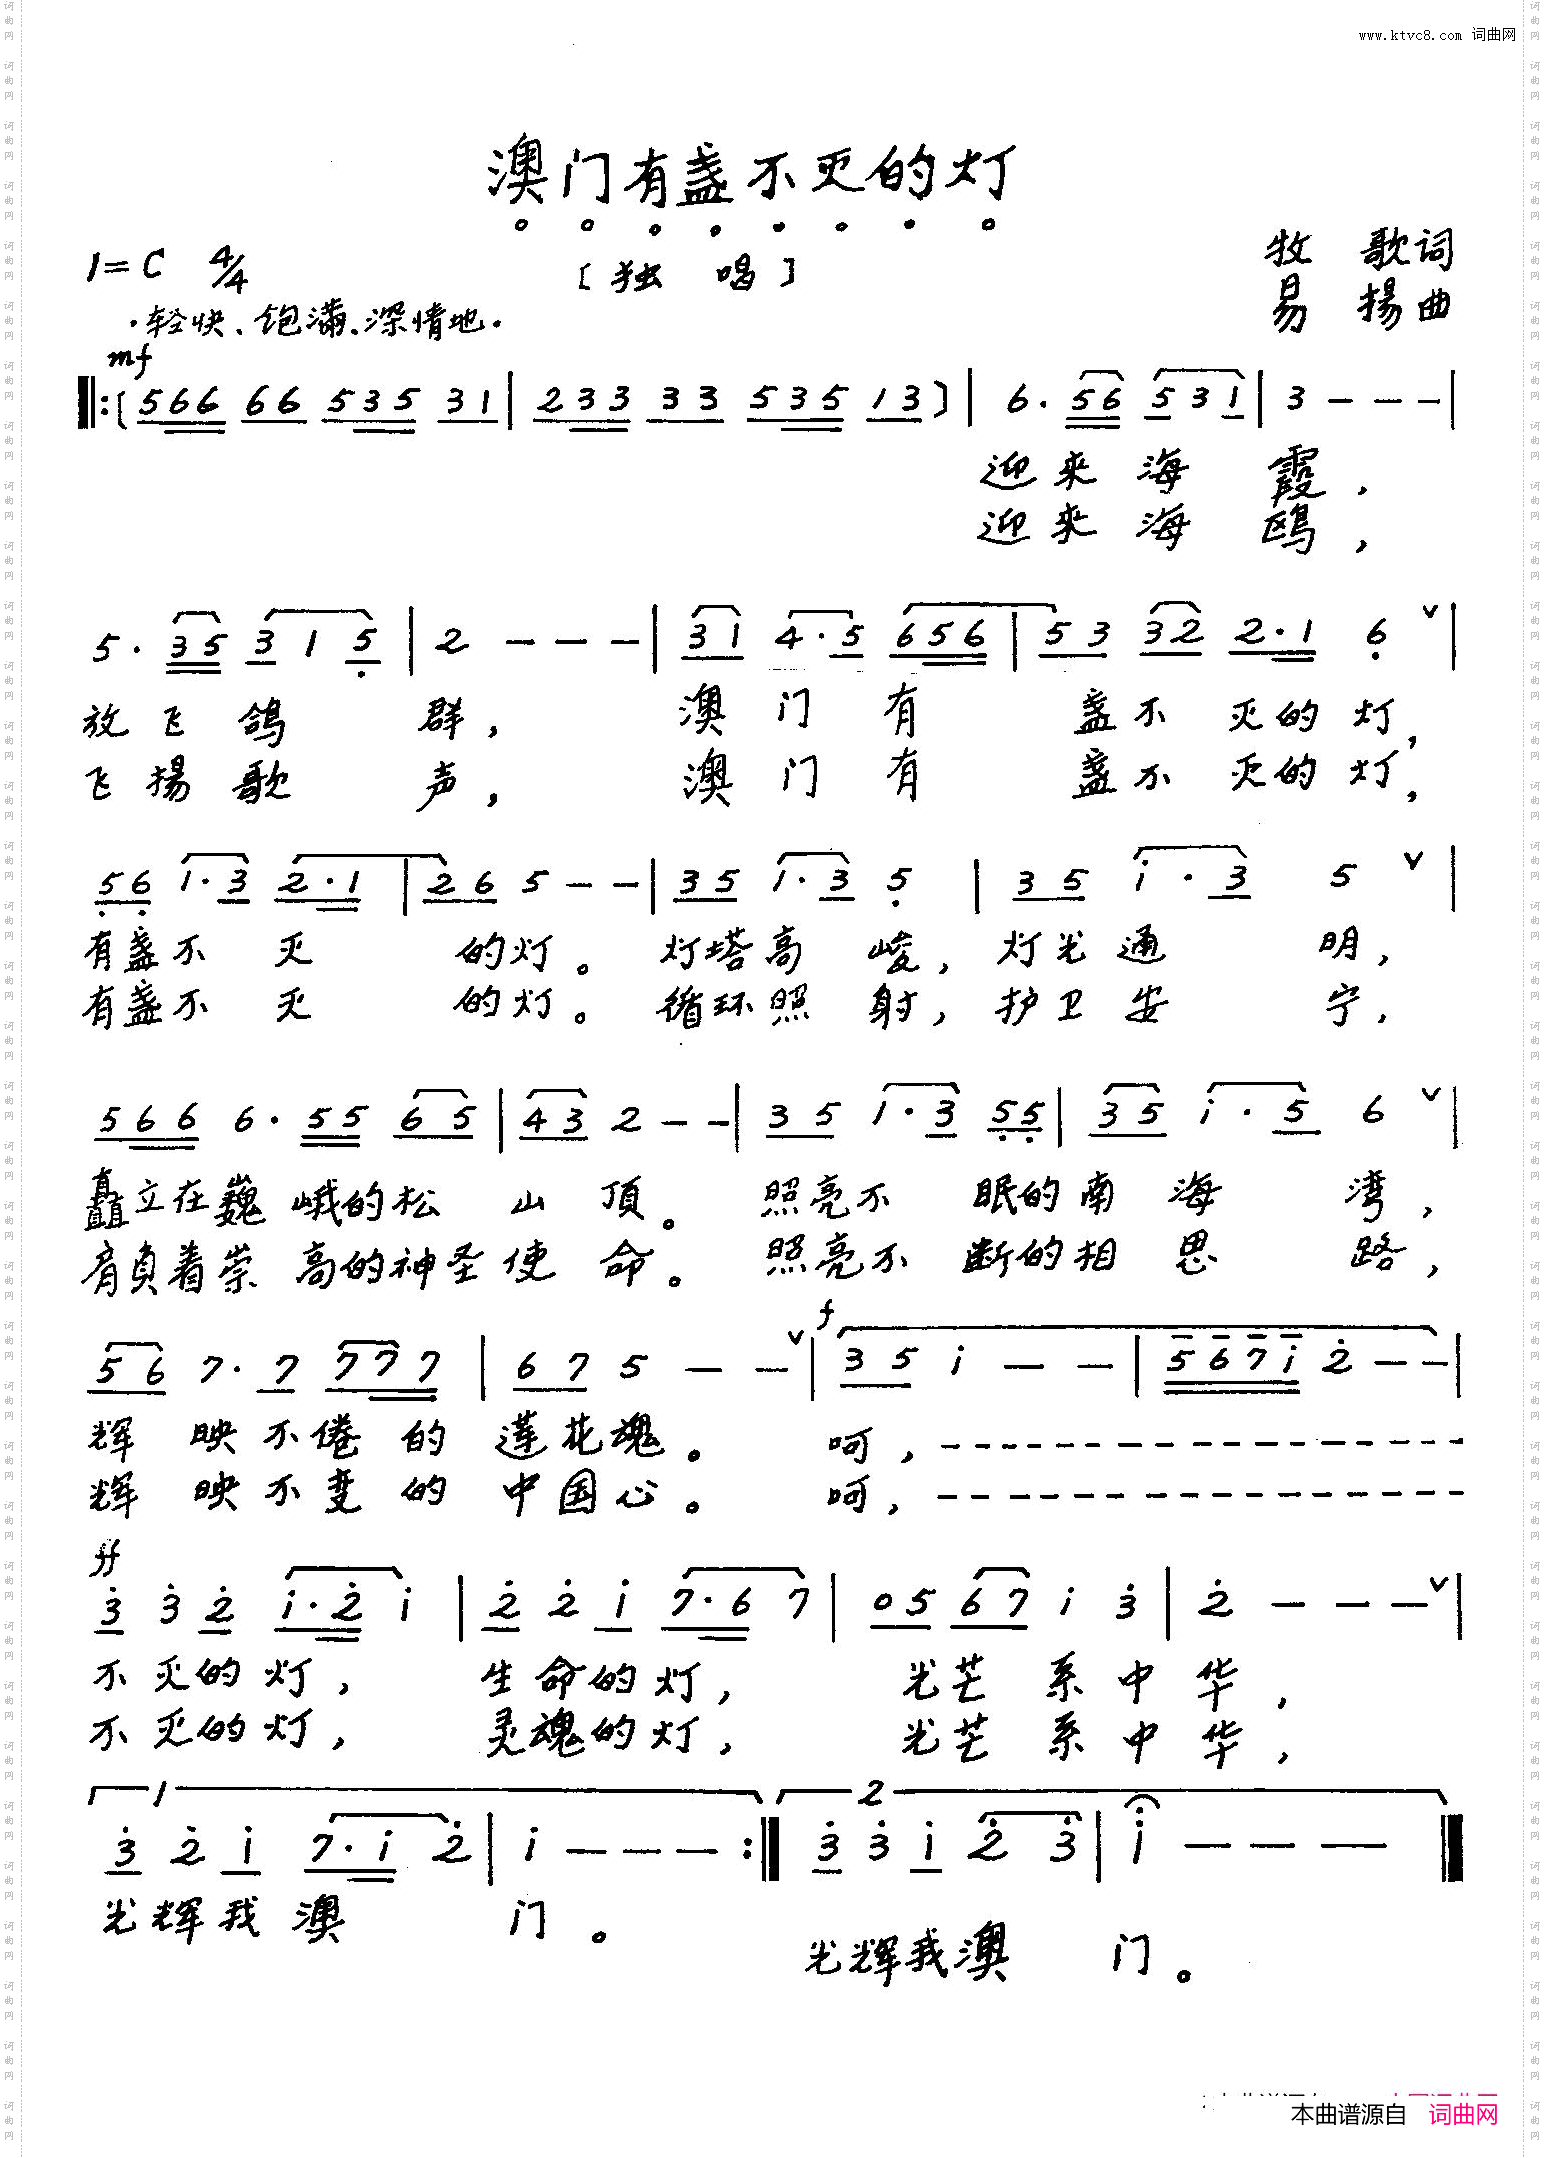 www.ktvc8.com 词曲网
澳门有盏不灭的灯
1=C 4/4 [独 唱] 牧 歌词
·轻快、饱满、深情地· 易 揚曲
mf
‖:(566 66 535 31|233 33 535 13)|6·56 531|3---|
迎来海霞，
迎来海鸥，
5·35 315|2---|31 4·5 656|53 32 2·1 6∨|
放飞鸽群，澳门有盏不灭的灯，
飞揚歌声，澳门有盏不灭的灯，
56 1·3 2·1|26 5--|35 1·3 5|35 i·3 5∨|
有盏不灭的灯。灯塔高峻，灯光通明，
有盏不灭的灯。循环照射，护卫安宁，
566 6·55 65|43 2--|35 1·3 55|35 i·5 6∨|
矗立在巍峨的松山顶。照亮不眠的南海湾，
肩负着崇高的神圣使命。照亮不断的相思路，
f
56 7·7 777|67 5--∨|35 i--|567i 2--|
辉映不倦的莲花魂。呵，------
辉映不变的中国心。呵，------
ff
3 3 2 i·2 i|2 2 i 7·6 7|05 67 i 3|2---∨|
不灭的灯，生命的灯，光芒系中华，
不灭的灯，灵魂的灯，光芒系中华，
1 2
3 2 i 7·i 2|i---:‖3 3 i 2 3|i---‖
光辉我澳门。
光辉我澳门。
本曲谱源自 词曲网